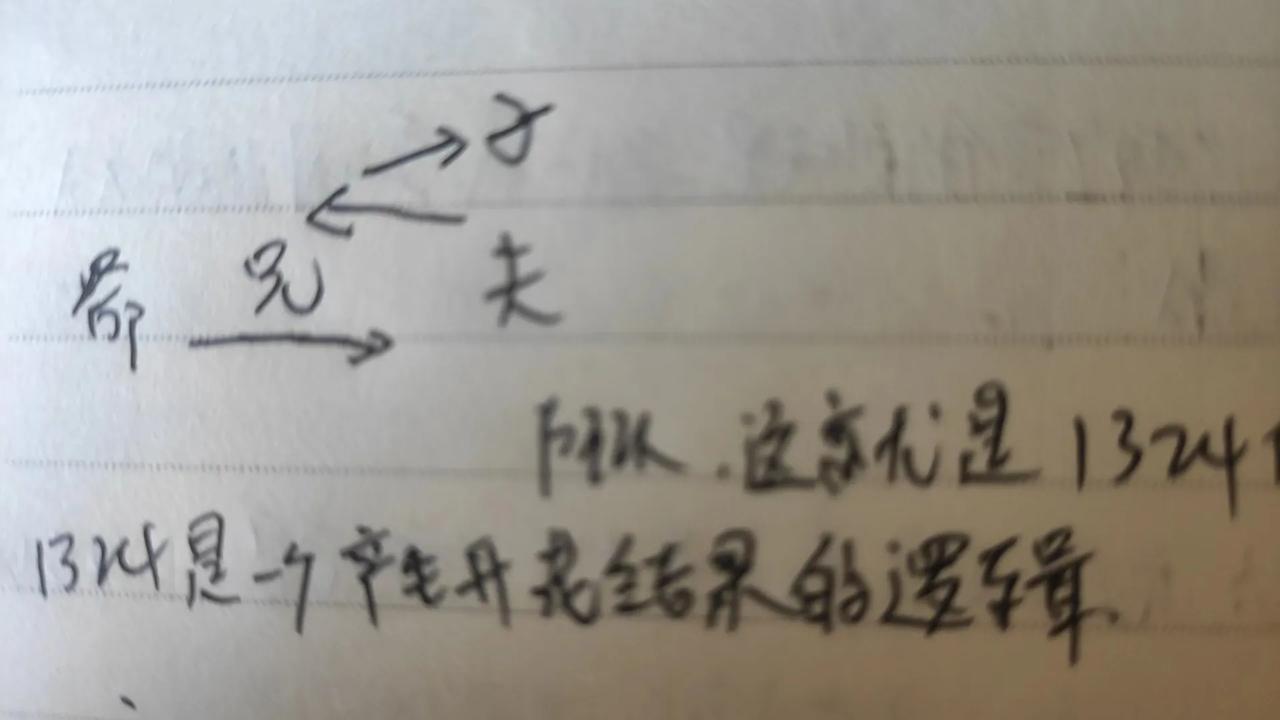 子
命 兄 夫
这就是1324
1324是一个产生开花结果的逻辑.